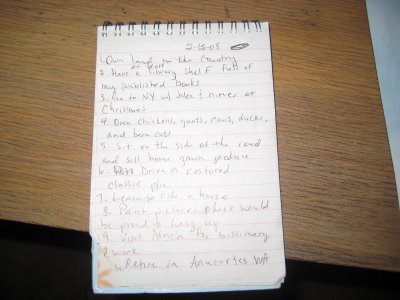 5-15-08
1. Own land in the country
at least
2. Have a library shelf full of
my published books
3. Go to NY w/ &  at
Christmas
4. Own chickens, goats, cows, ducks,
and barn cats
5. Sit on the side of the road
and sell home grown produce
6. Drive a restored
classic
7. Learn to ride a horse
8. Paint pictures others would
be proud to hang up
9. Visit Africa for missionary
work
Retire in Anacortes WA